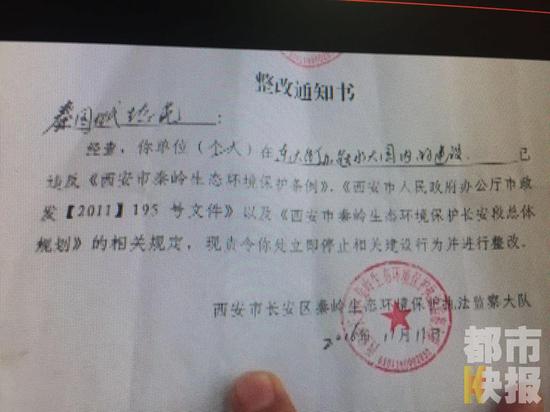 整改通知书
：
经查，你单位（个人）在东大街办 内的建设 已
违反《西安市秦岭生态环境保护条例》，《西安市人民政府办公厅市政
发【2011】195 号文件》以及《西安市秦岭生态环境保护长安段总体
规划》的相关规定，现责令你处立即停止相关建设行为并进行整改。
西安市长安区秦岭生态环境保护执法监察大队
2016年11月17日
都市
快报